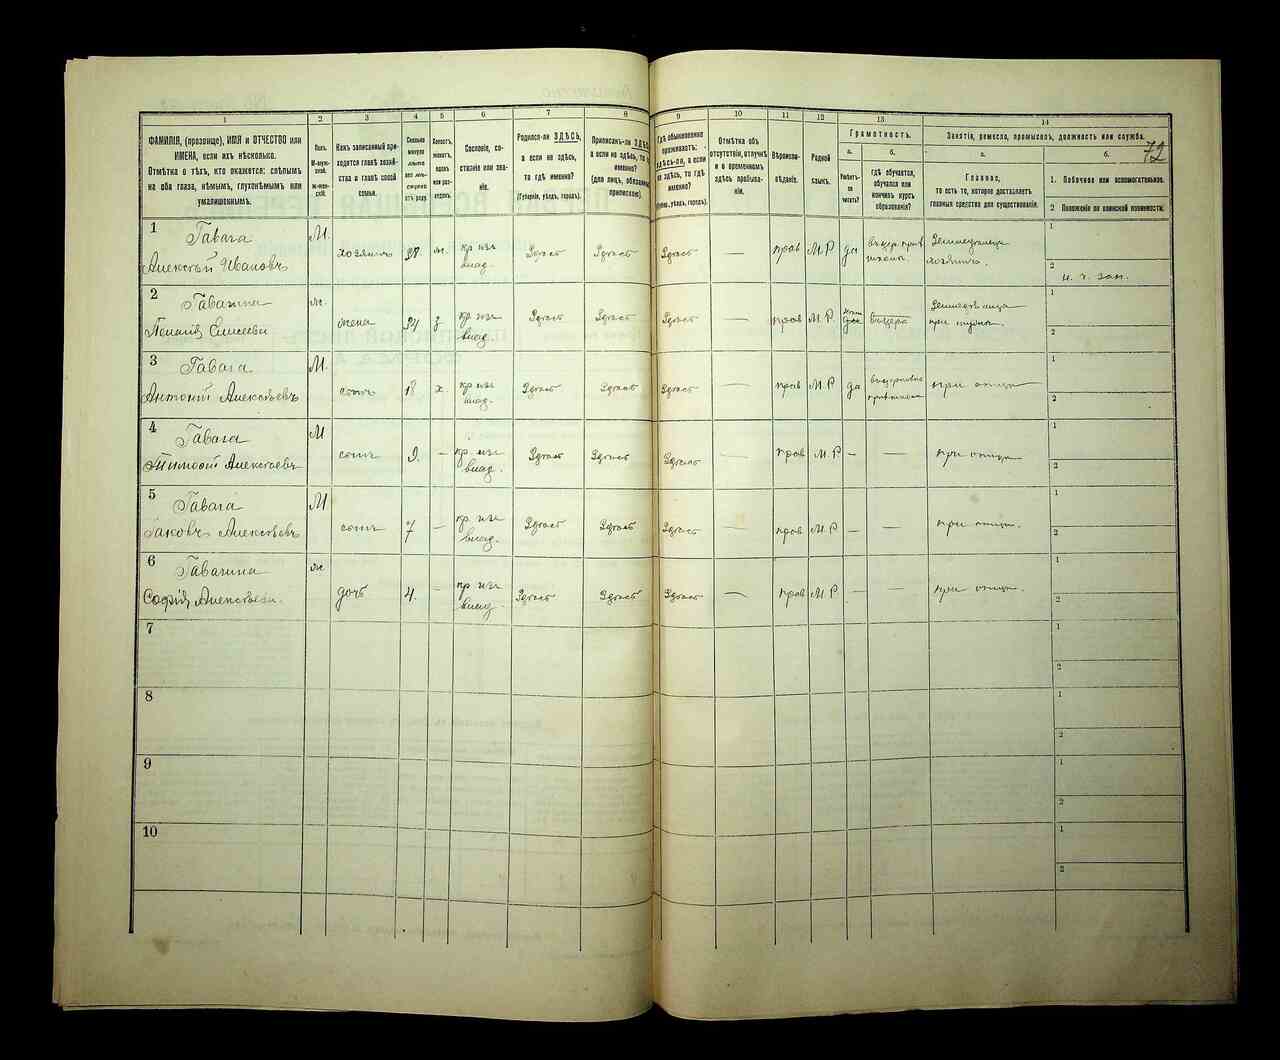 1 2 3 4 5 6 7 8 9 10 11 12 13 14
72
ФАМИЛІЯ, (прозвище), ИМЯ и ОТЧЕСТВО или
ИМЕНА, если ихъ нѣсколько.
Отмѣтка о тѣхъ, кто окажется: слѣпымъ
на оба глаза, нѣмымъ, глухонѣмымъ или
умалишеннымъ.
Полъ.
М-муж-
ской.
ж-жен-
скій.
Какъ записанный при-
ходится главѣ хозяй-
ства и главѣ своей
семьи.
Сколько
минуло
лѣтъ
Холостъ,
женатъ,
вдовъ
или раз-
веденъ.
Сословіе, со-
стояніе или зва-
ніе.
Родился-ли ЗДѢСЬ,
а если не здѣсь,
то гдѣ именно?
(Губернія, уѣздъ, городъ).
Приписанъ-ли ЗДѢСЬ
а если не здѣсь, то гдѣ
именно?
(для лицъ, обязанныхъ
припискою).
Гдѣ обыкновенно
проживаетъ:
здѣсь-ли, а если
не здѣсь, то гдѣ
именно?
уѣздъ, городъ).
Отмѣтка объ
отсутствіи, отлучкѣ
и о временномъ
здѣсь пребыва-
ніи.
Вѣроиспо-
вѣданіе.
Родной
языкъ.
Грамотность.
а. б.
Умѣетъ-
ли
читать?
гдѣ обучается,
обучался или
кончилъ курсъ
образованія?
Занятія, ремесло, промыселъ, должность или служба.
а. б.
Главное,
то есть то, которое доставляетъ
главныя средства для существованія.
1. Побочное или вспомогательное.
2 Положеніе по воинской повинности.
1 Гавага М. 1
Алексѣй Ивановъ хозяинъ 38. ж. кр изъ Здѣсь Здѣсь Здѣсь — прав М.Р да
влад. школ. хозяинъ. 2
2 ж. 1
Елисѣева жена 34 з кр изъ Здѣсь Здѣсь Здѣсь — прав М.Р. вчера
влад. при мужѣ. 2
3 Гавага М. 1
Антоній Алексѣевъ сынъ 18 х кр изъ Здѣсь Здѣсь Здѣсь — прав М.Р да при отцѣ
влад. 2
4 Гавага М 1
Тимофѣй Алексѣевъ сынъ 9. — кр. изъ Здѣсь Здѣсь Здѣсь — прав М.Р — — при отцѣ
влад. 2
5 Гавага М 1
Яковъ Алексѣевъ сынъ 7 — кр. изъ Здѣсь Здѣсь Здѣсь — прав М.Р — — при отцѣ.
влад. 2
6 ж 1
Софія Алексѣева. дочь 4. — кр изъ Здѣсь Здѣсь Здѣсь — прав М.Р — — при отцѣ.
влад. 2
7 1
2
8 1
2
9 1
2
10 1
2